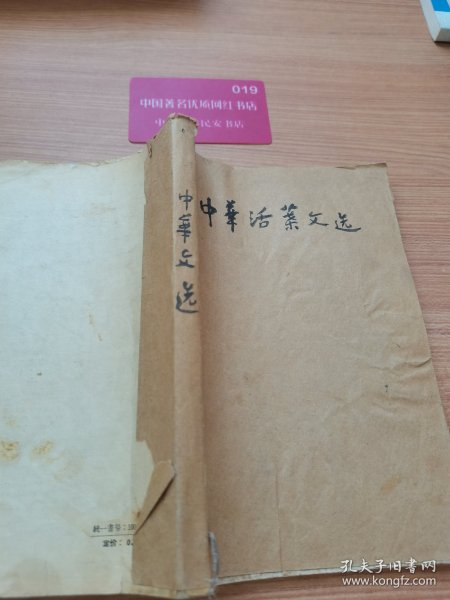 019
中国著名优质网红书店
民安书店
中華文选
中華活葉文选
統一書号：10
定价：0.
孔夫子旧书网
www.kongfz.com